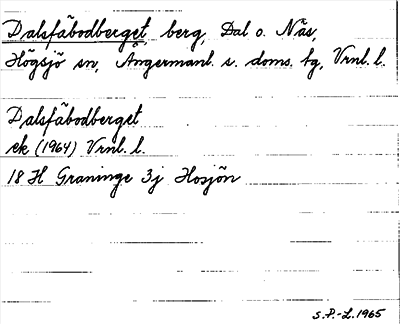 Dalsfäbodberget, berg, Dal o. Näs,
Högsjö sn, Ångermanl. s. doms. tg, Vrnl. l.
Dalsfäbodberget
ek (1964) Vrnl. l.
18 H Graninge 3j Hosjön
S.P.-L. 1965